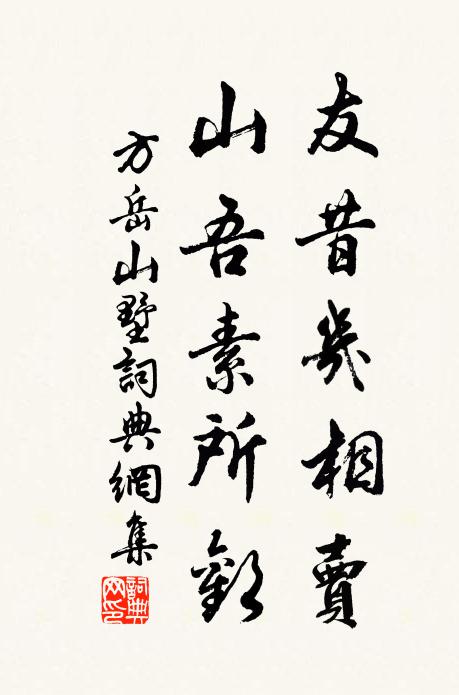 友昔幾相賣
山吾素所歡
方岳山墅詞典網集
詞典网印